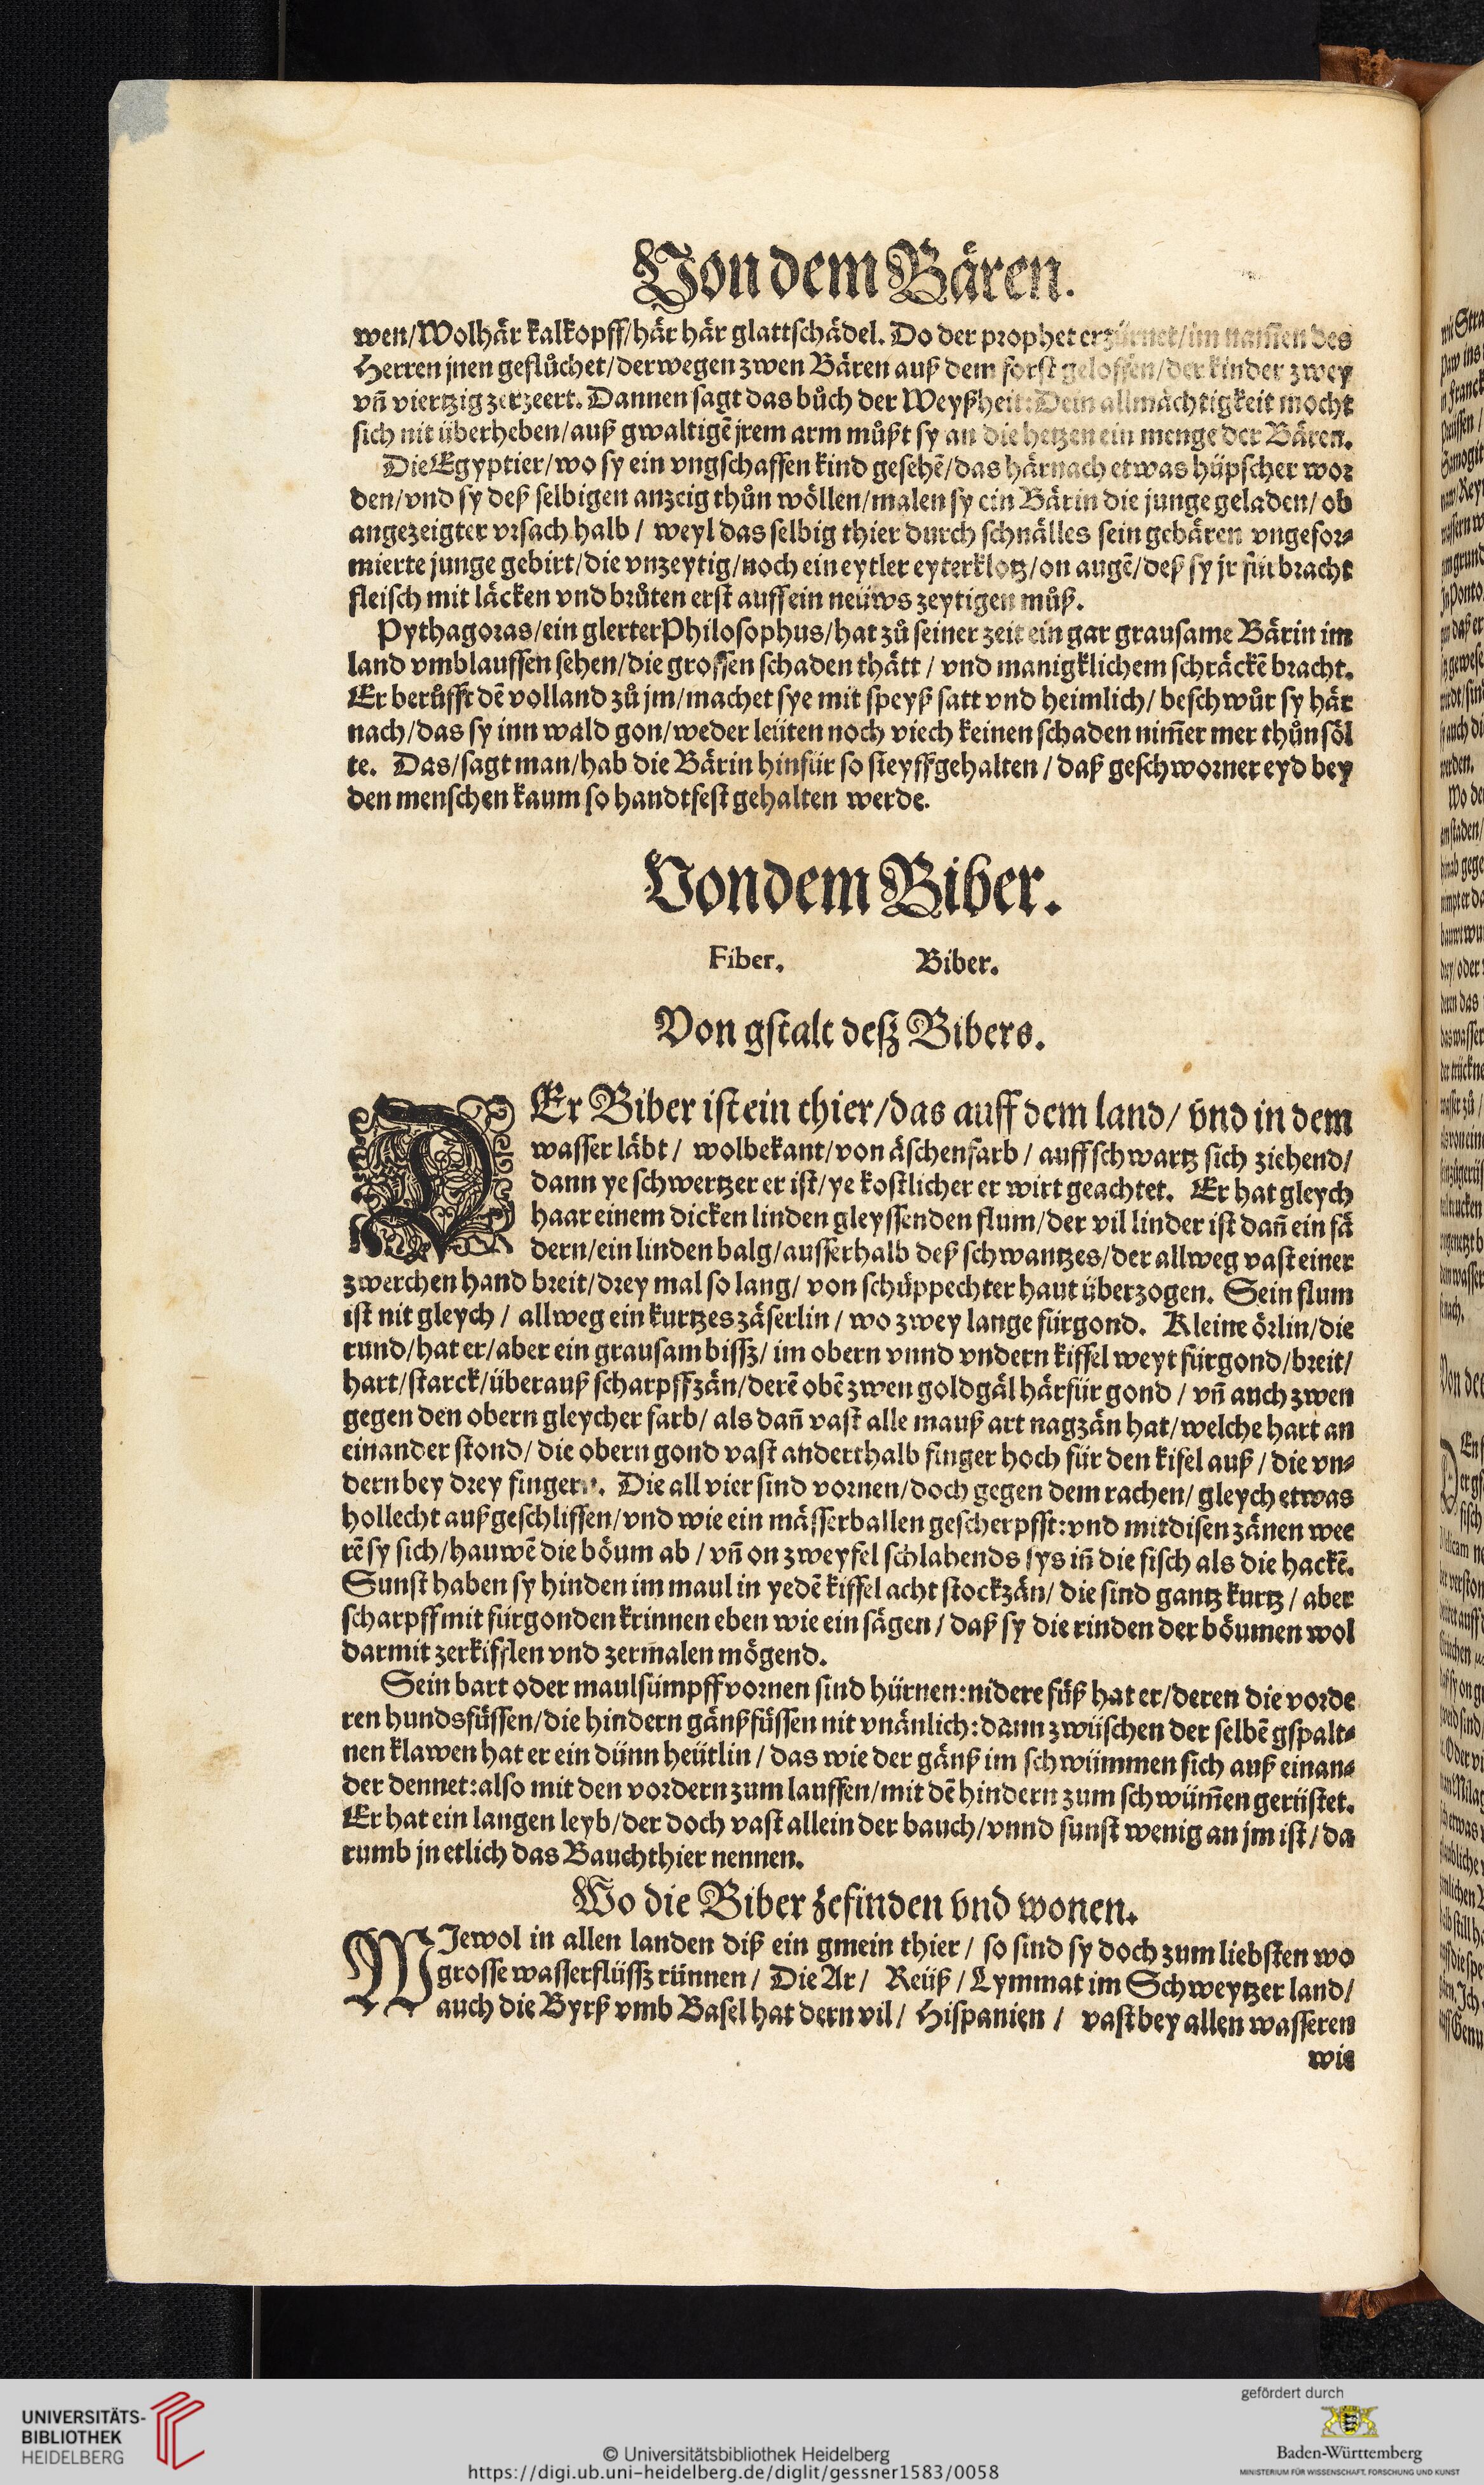 Von dem Bären.
wen/Wolhär kalkopff/här här glattschädel. Do der prophet erzürnet/im nam̃en des
Herren jnen geflůchet/derwegen zwen Bären auß dem forst geloffen/der kinder zwey
vñ viertzig zerzeert. Dannen sagt das bůch der Weyßheit: Dein allmächtigkeit mocht
sich nit überheben/auß gwaltigẽ jrem arm můßt sy an die hetzen ein menge der Bären.
Die Egyptier/wo sy ein vngschaffen kind gesehẽ/das härnach etwas hüpscher wor
den/vnd sy deß selbigen anzeig thůn wöllen/malen sy ein Bärin die junge geladen/ob
angezeigter vrsach halb/ weyl das selbig thier durch schnälles sein gebären vngefor⸗
mierte junge gebirt/die vnzeytig/noch ein eytler eyterklotz/on augẽ/deß sy jr für bracht
fleisch mit läcken vnd brůten erst auff ein neüws zeytigen můß.
Pythagoras/ein glerter Philosophus/hat zů seiner zeit ein gar grausame Bärin im
land vmblauffen sehen/die grossen schaden thätt/ vnd manigklichem schräckẽ bracht.
Er berůfft dẽ volland zů jm/machet sye mit speyß satt vnd heimlich/ beschwůr sy här
nach/das sy inn wald gon/weder leüten noch viech keinen schaden nim̃er mer thůn söl
te. Das/sagt man/hab die Bärin hinfür so steyff gehalten/ daß geschworner eyd bey
den menschen kaum so handtfest gehalten werde.
Von dem Biber.
Fiber. Biber.
Von gstalt desz Bibers.
DEr Biber ist ein thier/das auff dem land/ vnd in dem
wasser läbt/ wolbekant/von äschenfarb/ auff schwartz sich ziehend/
dann ye schwertzer er ist/ye kostlicher er wirt geachtet. Er hat gleych
haar einem dicken linden gleyssenden flum/der vil linder ist dañ ein fä
dern/ein linden balg/ausserhalb deß schwantzes/der allweg vast einer
zwerchen hand breit/drey mal so lang/ von schüppechter haut überzogen. Sein flum
ist nit gleych/ allweg ein kurtzes zäserlin/ wo zwey lange fürgond. Kleine örlin/die
rund/hat er/aber ein grausam bissz/ im obern vnnd vndern kiffel weyt fürgond/breit/
hart/starck/überauß scharpff zän/derẽ obẽ zwen goldgäl härfür gond/ vñ auch zwen
gegen den obern gleycher farb/ als dañ vast alle mauß art nagzän hat/welche hart an
einander stond/ die obern gond vast anderthalb finger hoch für den kifel auß/ die vn⸗
dern bey drey fingern. Die all vier sind vornen/doch gegen dem rachen/ gleych etwas
hollecht außgeschlissen/vnd wie ein mässerballen gescherpfft: vnd mit disen zänen wee
rẽ sy sich/hauwẽ die böum ab/ vñ on zweyfel schlahends sys iñ die fisch als die hackẽ.
Sunst haben sy hinden im maul in yedẽ kiffel acht stockzän/ die sind gantz kurtz/ aber
scharpff mit fürgonden krinnen eben wie ein sägen/ daß sy die rinden der böumen wol
darmit zerkifflen vnd zermalen mögend.
Sein bart oder maulsümpff vornen sind hürnen: nidere füß hat er/deren die vorde
ren hundsfüssen/die hindern gänßfüssen nit vnänlich: dann zwüschen der selbẽ gspalt⸗
nen klawen hat er ein dünn heütlin/ das wie der gänß im schwümmen sich auß einan⸗
der dennet: also mit den vordern zum lauffen/mit dẽ hindern zum schwüm̃en gerüstet.
Er hat ein langen leyb/der doch vast allein der bauch/vnnd sunst wenig an jm ist/ da
rumb jn etlich das Bauchthier nennen.
Wo die Biber zefinden vnd wonen.
WJewol in allen landen diß ein gmein thier/ so sind sy doch zum liebsten wo
grosse wasserflüssz rünnen/ Die Ar/ Reüß/ Lymmat im Schweytzer land/
auch die Byrß vmb Basel hat dern vil/ Hispanien/ vast bey allen wasseren
wie
UNIVERSITÄTS-
BIBLIOTHEK
HEIDELBERG
© Universitätsbibliothek Heidelberg
https://digi.ub.uni-heidelberg.de/diglit/gessner1583/0058
gefördert durch
Baden-Württemberg
MINISTERIUM FÜR WISSENSCHAFT, FORSCHUNG UND KUNST